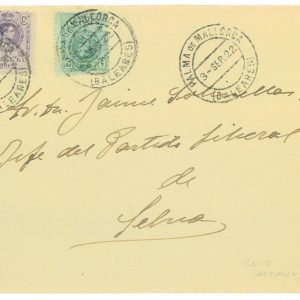 MALLORCA
(BALEARES)
PALMA DE MALLORCA
3-SEP.22
(BALEARES)
Sr. Dn. Jaime
Jefe del Partido liberal
de
Selva